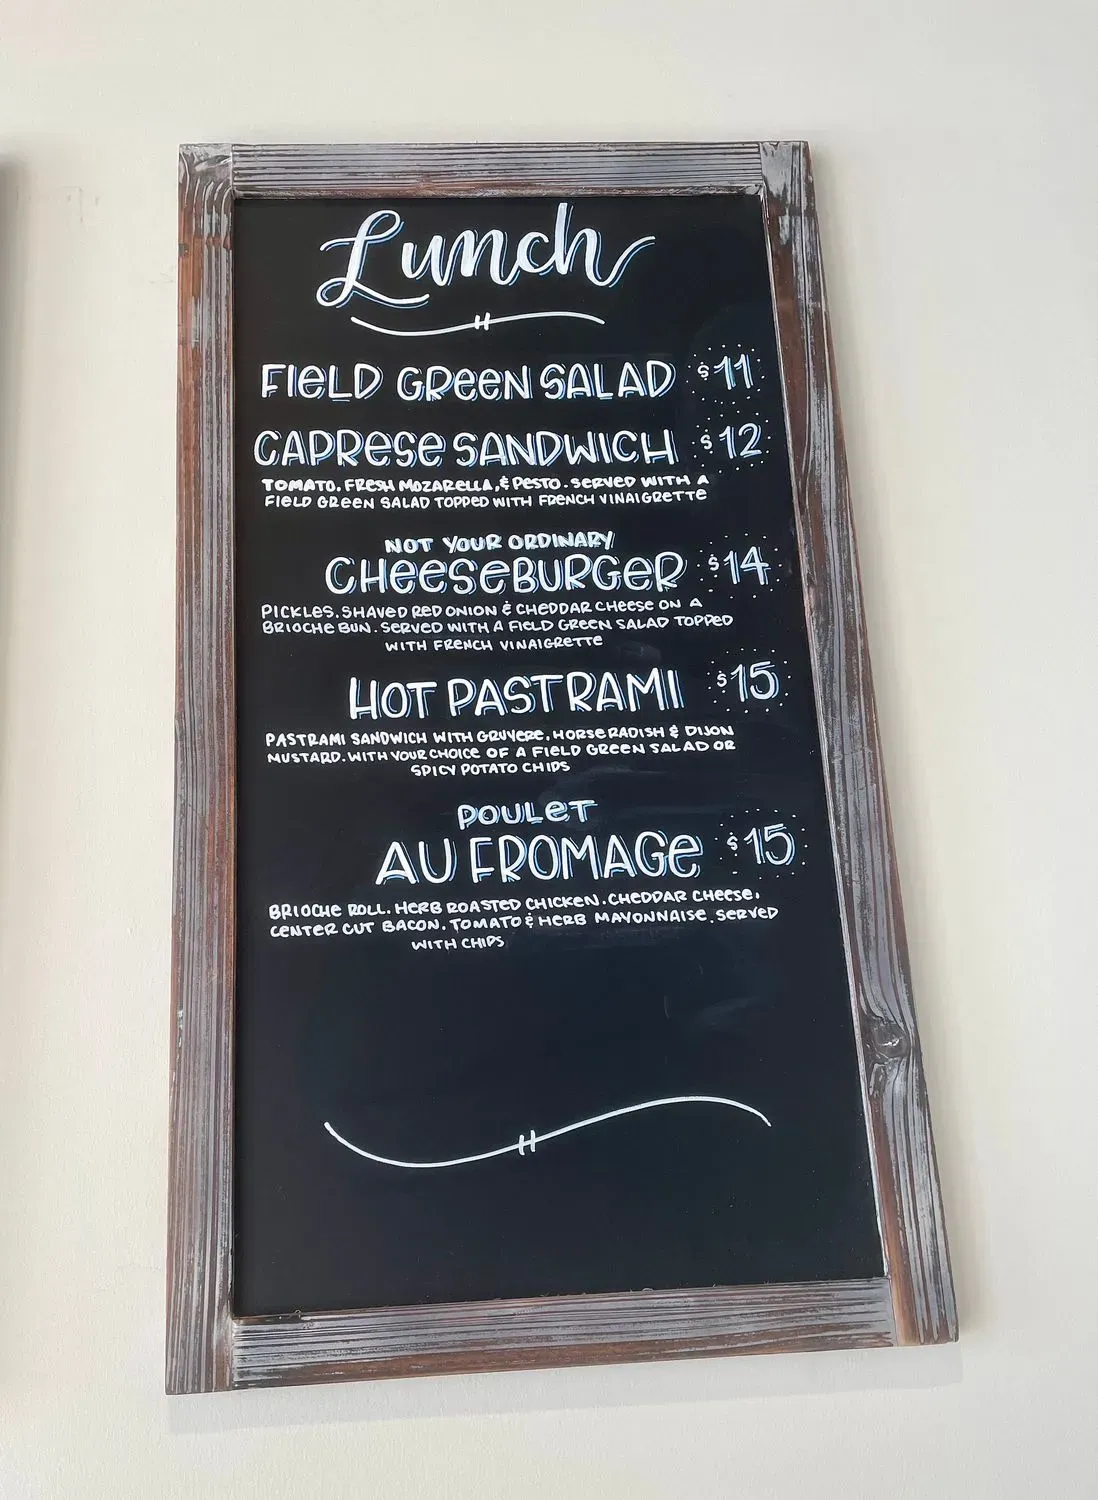 Lunch
FIELD GREEN SALAD $11
CAPRESE SANDWICH $12
TOMATO, FRESH MOZARELLA, & PESTO. SERVED WITH A
FIELD GREEN SALAD TOPPED WITH FRENCH VINAIGRETTE
NOT YOUR ORDINARY
CHEESEBURGER $14
PICKLES, SHAVED RED ONION & CHEDDAR CHEESE ON A
BRIOCHE BUN. SERVED WITH A FIELD GREEN SALAD TOPPED
WITH FRENCH VINAIGRETTE
HOT PASTRAMI $15
PASTRAMI SANDWICH WITH GRUYERE, HORSERADISH & DIJON
MUSTARD. WITH YOUR CHOICE OF A FIELD GREEN SALAD OR
SPICY POTATO CHIPS
POULET
AU FROMAGE $15
BRIOCHE ROLL, HERB ROASTED CHICKEN, CHEDDAR CHEESE,
CENTER CUT BACON, TOMATO & HERB MAYONNAISE. SERVED
WITH CHIPS